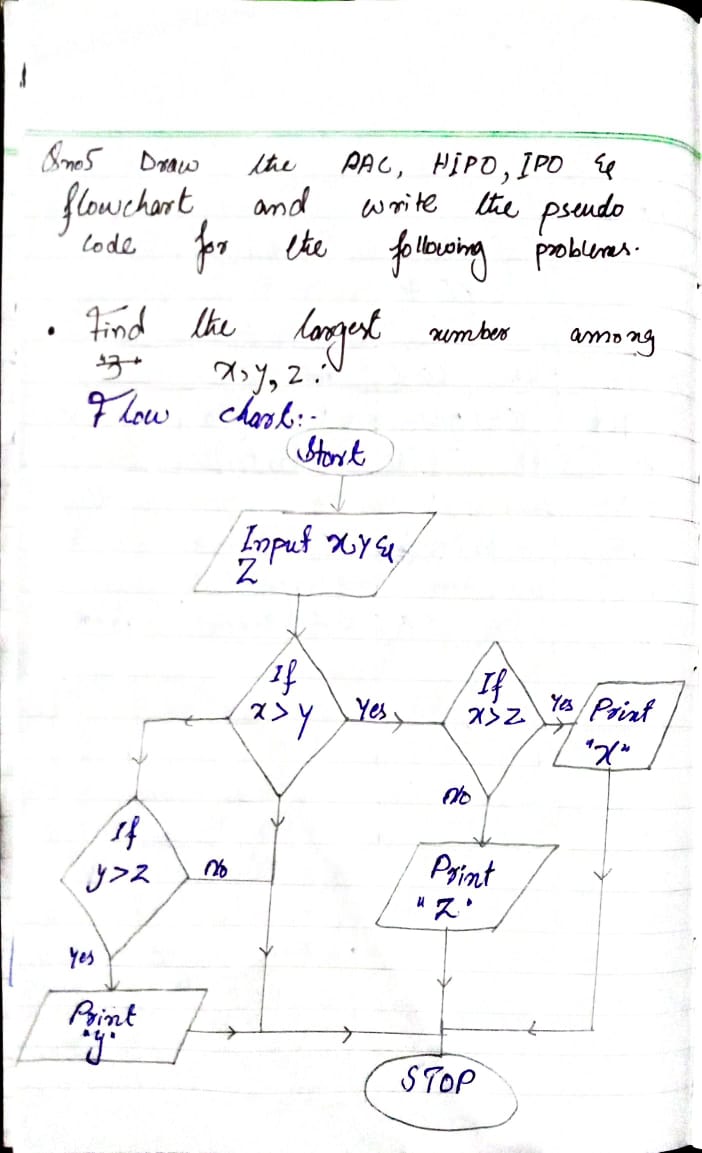 Qno5 Draw the PAC, HIPO, IPO &
flowchart and write the pseudo
code for the following problems.
• Find the largest number among
x, y, z.
Flow chart:-
Start
Input x, y &
Z
If
x > y
Yes
If
x > z
Yes
Print
"x"
no
If
y > z
no
Print
"Z"
Yes
Print
"y"
STOP